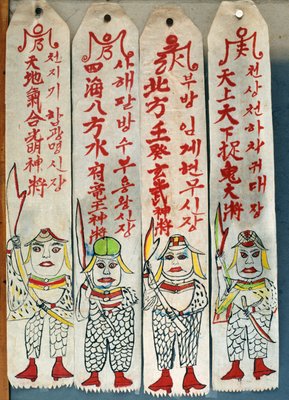 천상천하착귀대장
天上天下捉鬼大將
부방임계현무신장
北方壬癸玄武神將
사해팔방수부용왕신장
四海八方水府龍王神將
천지기합광명신장
天地氣合光明神將